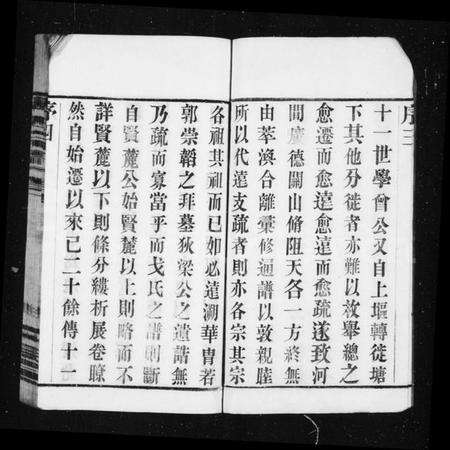 序三
十一世學曾公又自上堰轉徙塘
下其他分徙者亦難以枚舉總之
愈遷而愈遠愈遠而愈疏遂致河
間廣德關山脩阻天各一方終無
由萃渙合離彙修通譜以敦親睦
所以代遠支疏者則亦各宗其宗
各祖其祖而已如必遠溯華胄若
郭崇韜之拜墓狄梁公之遺誥無
乃疏而寡當乎而戈氏之譜則斷
自賢麓公始賢麓以上則略而不
詳賢麓以下則條分縷析展卷瞭
然自始遷以來已二十餘傳十一
序四